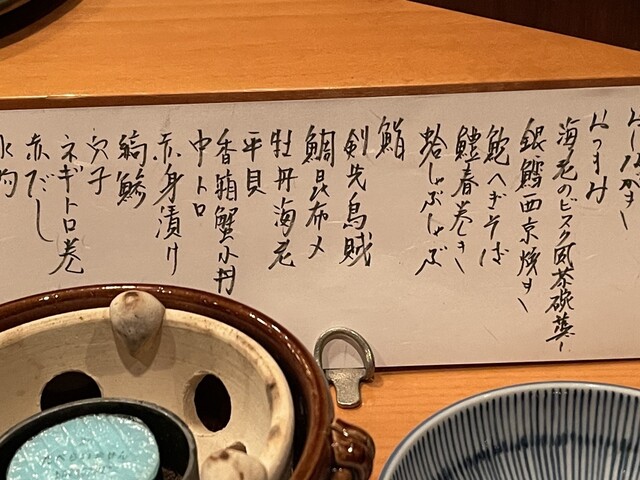 おしながき
おつまみ
海老のビスク風茶碗蒸し
銀鱈西京焼き
鮑へぎそば
鱧春巻き
蛤しゃぶしゃぶ
鮨
剣先烏賊
鯛昆布〆
牡丹海老
平貝
香箱蟹小丼
中トロ
赤身漬け
縞鯵
穴子
ネギトロ巻
赤だし
水物
たべられません